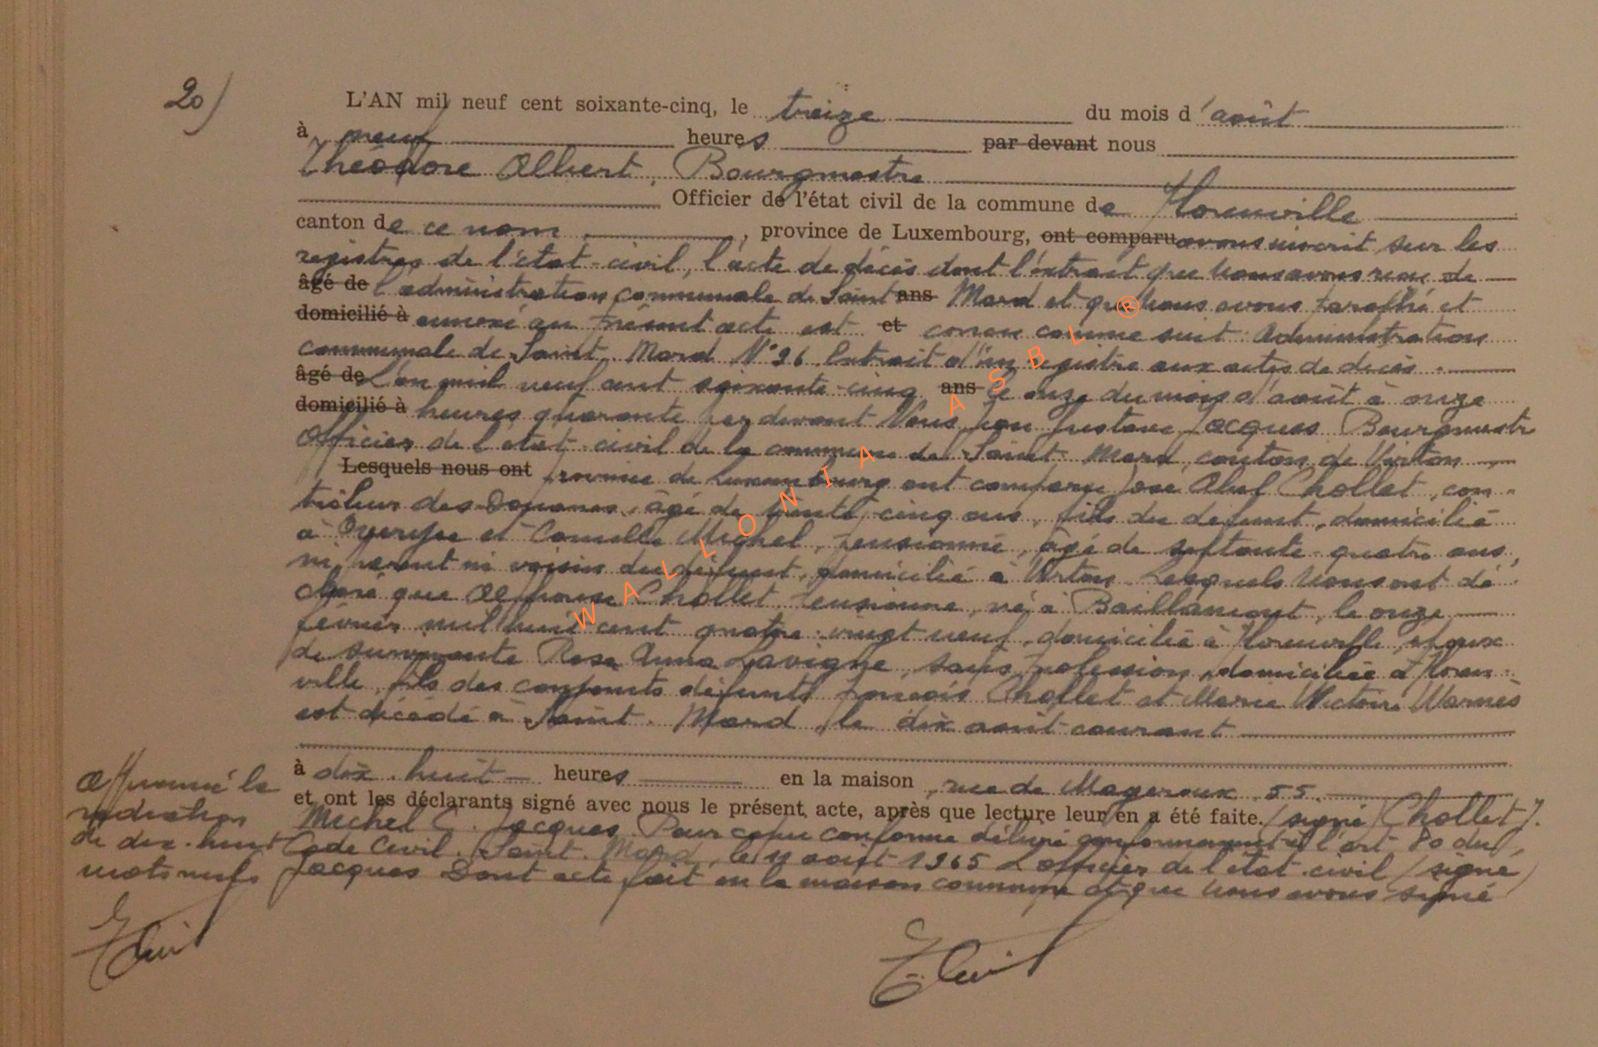 20)
L'AN mil neuf cent soixante-cinq, le treize du mois d'août
à neuf heures par devant nous
Théodore Albert, Bourgmestre
Officier de l'état civil de la commune de Florenville
canton de ce nom, province de Luxembourg, ont comparu avons inscrit sur les
registres de l'état-civil, l'acte de décès dont l'extrait que nous avons reçu de
âgé de l'administration communale de Saint ans Mard et que nous avons paraphé et
domicilié à annexé au présent acte est et conçu comme suit Administration
communale de Saint-Mard N°26. Extrait d'un registre aux actes de décès.
âgé de L'an mil neuf cent soixante-cinq ans le onze du mois d'août à onze
domicilié à heures quarante par devant Nous, Gustave Jacques Bourgmestre
Officier de l'état-civil de la commune de Saint-Mard, canton de Virton
Lesquels nous ont province de Luxembourg ont comparu José Abel Chollet, con-
trôleur des Douanes, âgé de trente-cinq ans, fils du défunt, domicilié
à et Camille Michel, pensionné, âgé de septante-quatre ans,
ni parent ni voisin du défunt, domicilié à Virton. Lesquels Nous ont dé-
claré que Alphonse Chollet, pensionné, né à Baillamont, le onze
février mil huit cent quatre-vingt neuf, domicilié à Florenville, époux
de survivante Rose Anna Lavigne, sans profession, domiciliée à Floren-
ville, fils des conjoints défunts François Chollet et Marie Victoire Warnès
est décédé à Saint-Mard, le dix août courant
à dix-huit heures en la maison, rue de Mageroux 55.
et ont les déclarants signé avec nous le présent acte, après que lecture leur en a été faite. (signé) Chollet J.
Michel C. Jacques. Pour copie conforme délivré conformément à l'art 80 du
Code Civil. Saint-Mard, le 11 août 1965 L'officier de l'état-civil (signé)
Jacques Dont acte fait en la maison commune et que Nous avons signé
Approuvé la
radiation
de dix-huit
mots nuls
WALLONIA ASBL ®